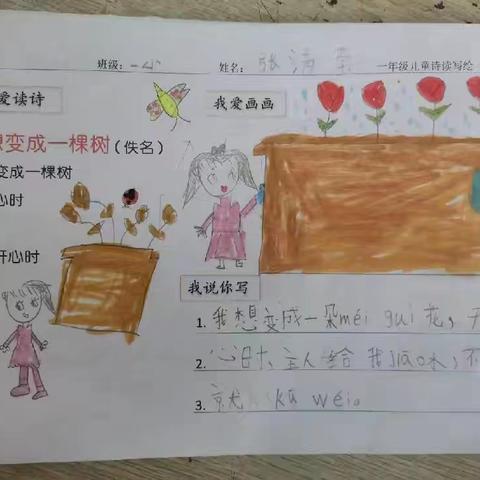 班级：一 姓名：张满 一年级儿童诗读写绘
爱读诗
我爱画画
想变成一棵树（佚名）
变成一棵树
心时
开心时
我说你写
1. 我想变成一朵méi gui 花，开
2. 心日寸，主人给我 水，不
3. 就 kū wěi。